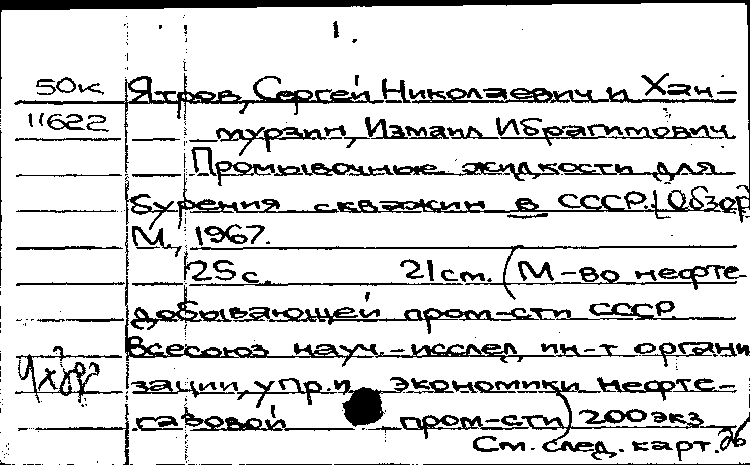 1.
50к Ятров, Сергей Николаевич и Хан-
11622 мурзин, Измаил Ибрагимович
Промывочные жидкости для
бурения скважин в СССР. [Обзор]
М., 1967.
25 с. 21 см. (М-во нефте-
добывающей пром-сти СССР.
Всесоюз науч.-исслед. ин-т органи
зации, упр. и экономики нефте-
газовой пром-сти) 200 экз
См. след. карт.